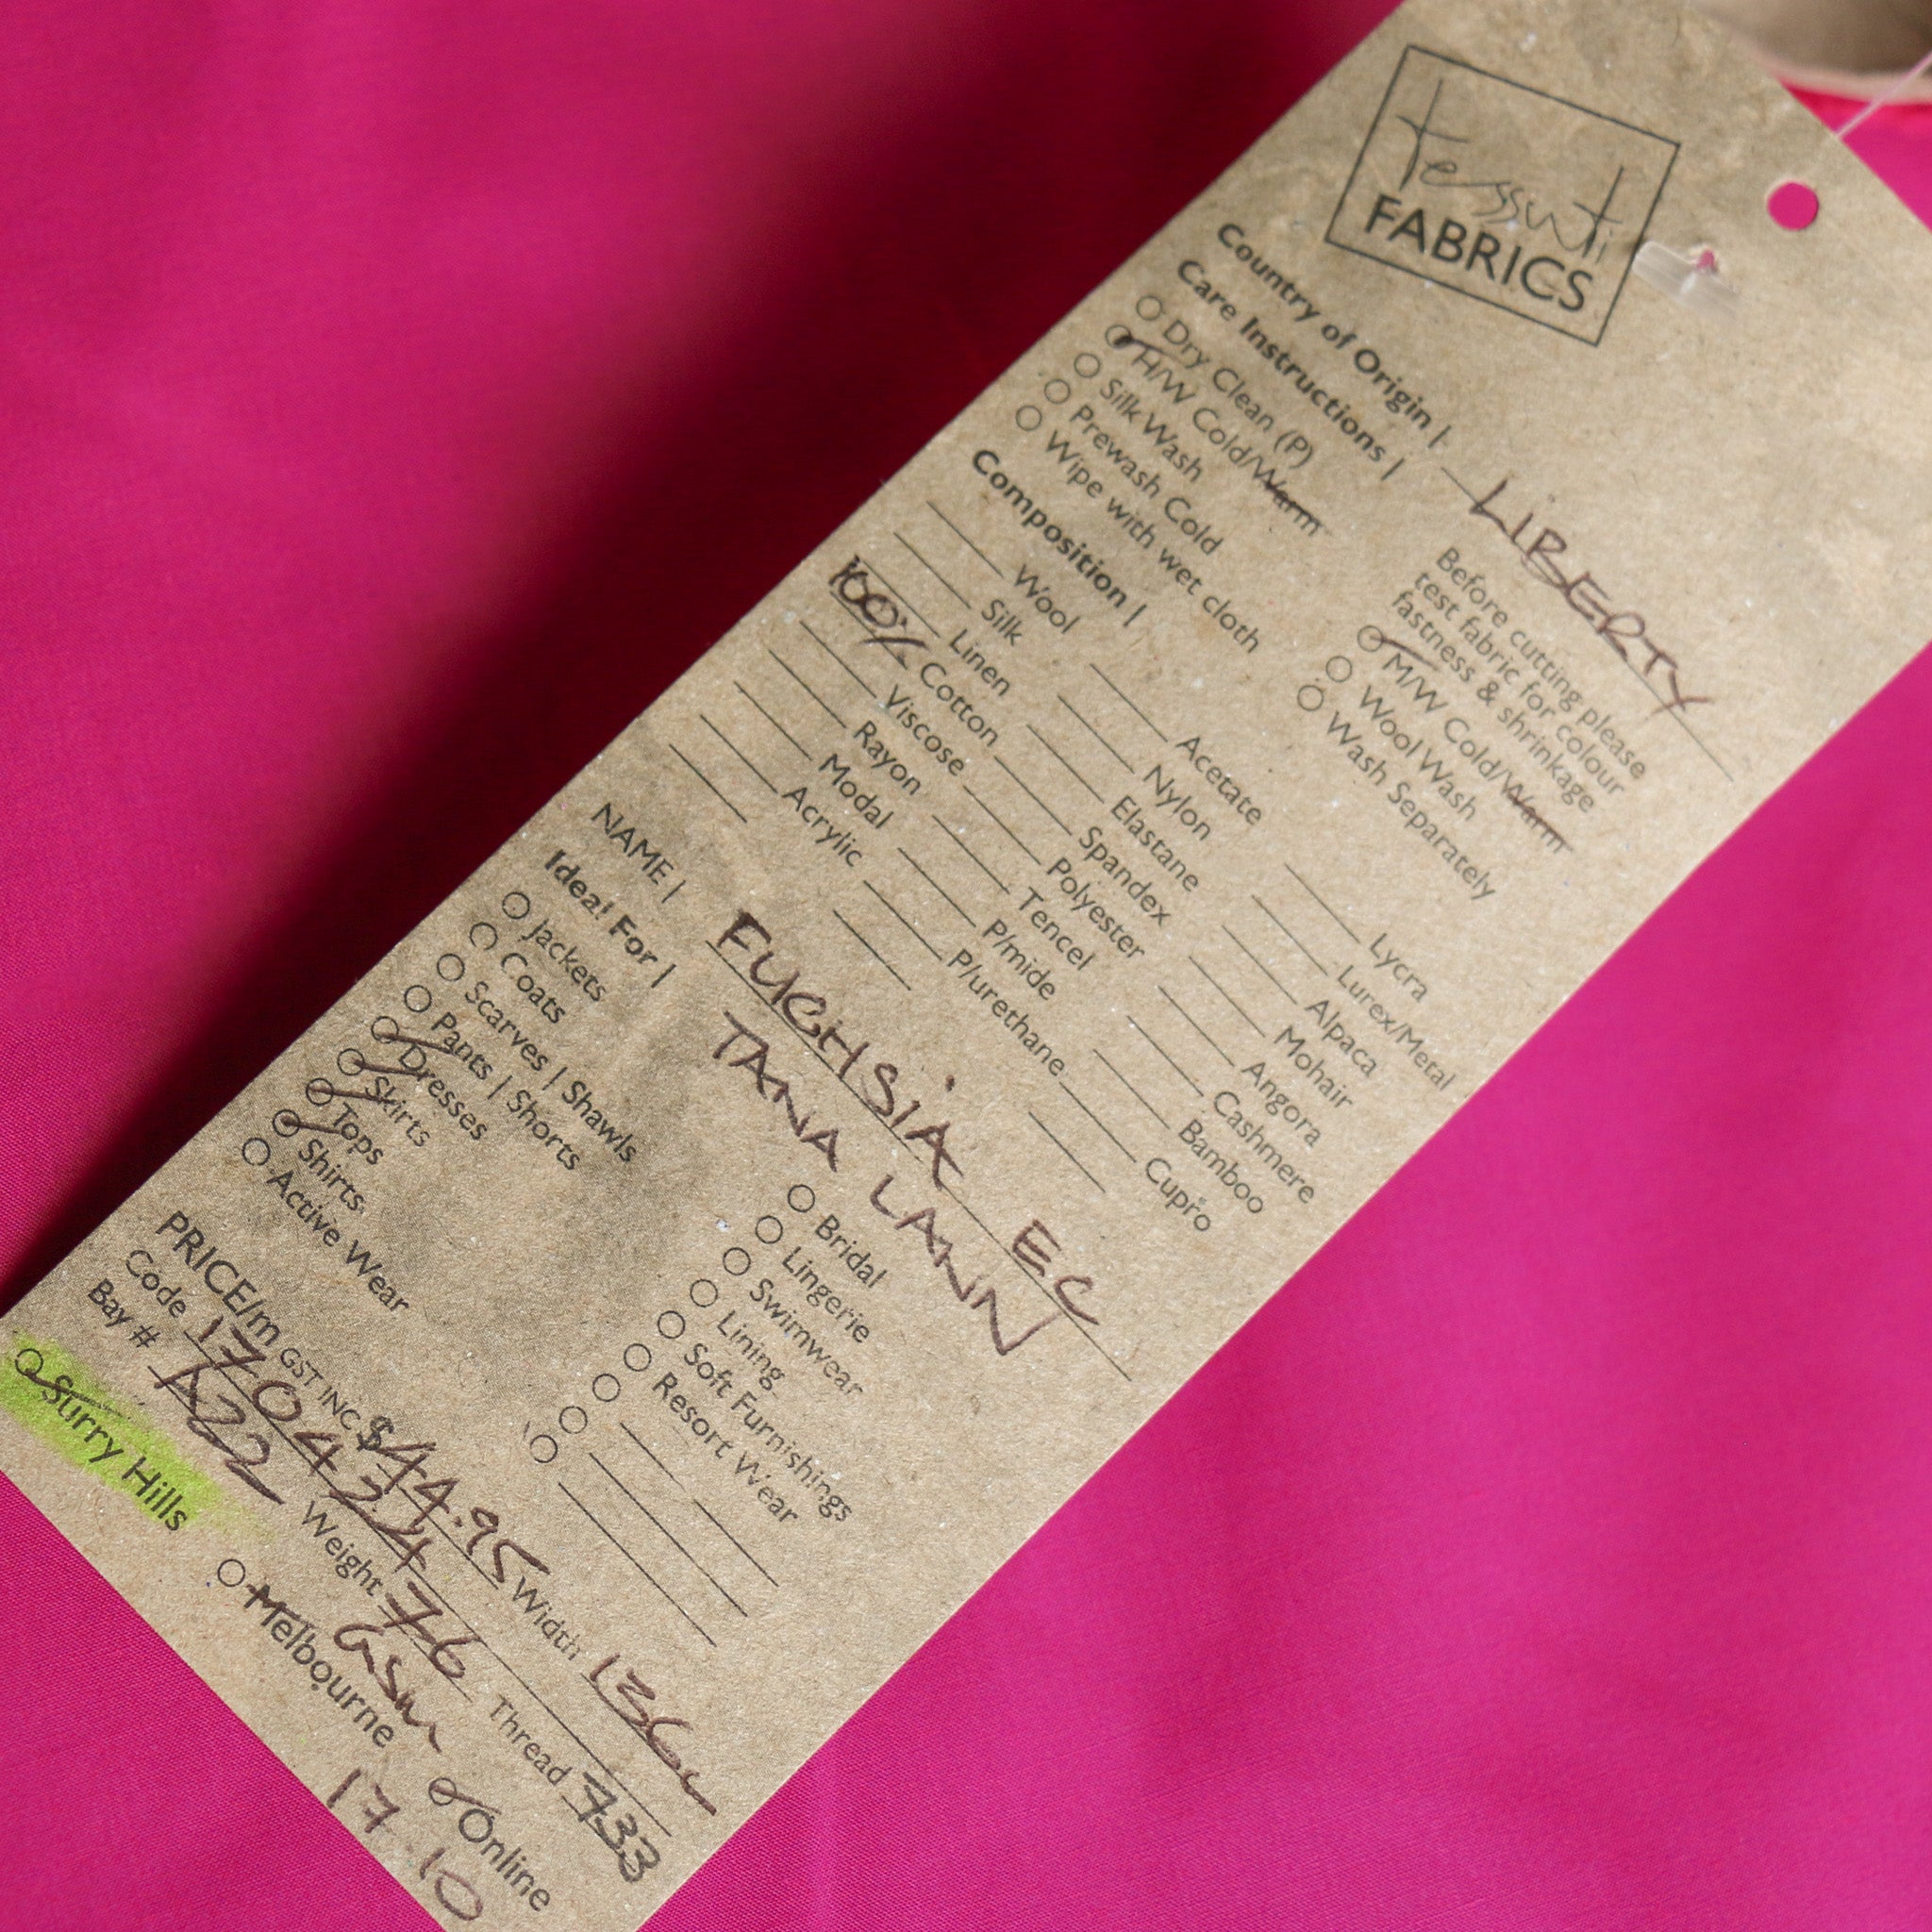 tessuti
FABRICS
Country of Origin | LIBERTY
Care Instructions |
Before cutting please
test fabric for colour
fastness & shrinkage
Dry Clean (P)
H/W Cold/Warm
M/W Cold/Warm
Silk Wash
Wool Wash
Prewash Cold
Wash Separately
Wipe with wet cloth
Composition |
Wool Acetate Lycra
Silk Nylon Lurex/Metal
Linen Elastane Alpaca
100% Cotton Spandex Mohair
Viscose Polyester Angora
Rayon Tencel Cashmere
Modal P/mide Bamboo
Acrylic P/urethane Cupro
NAME | FUCHSIA EC
TANA LAWN
Ideal For |
Jackets Bridal
Coats Lingerie
Scarves | Shawls Swimwear
Pants | Shorts Lining
Dresses Soft Furnishings
Skirts Resort Wear
Tops
Shirts
Active Wear
PRICE/m GST INC $44.95 Width 136cm
Code 1704224 Thread 733
Bay # A22 Weight 76
GSM
Surry Hills Melbourne Online
17.10